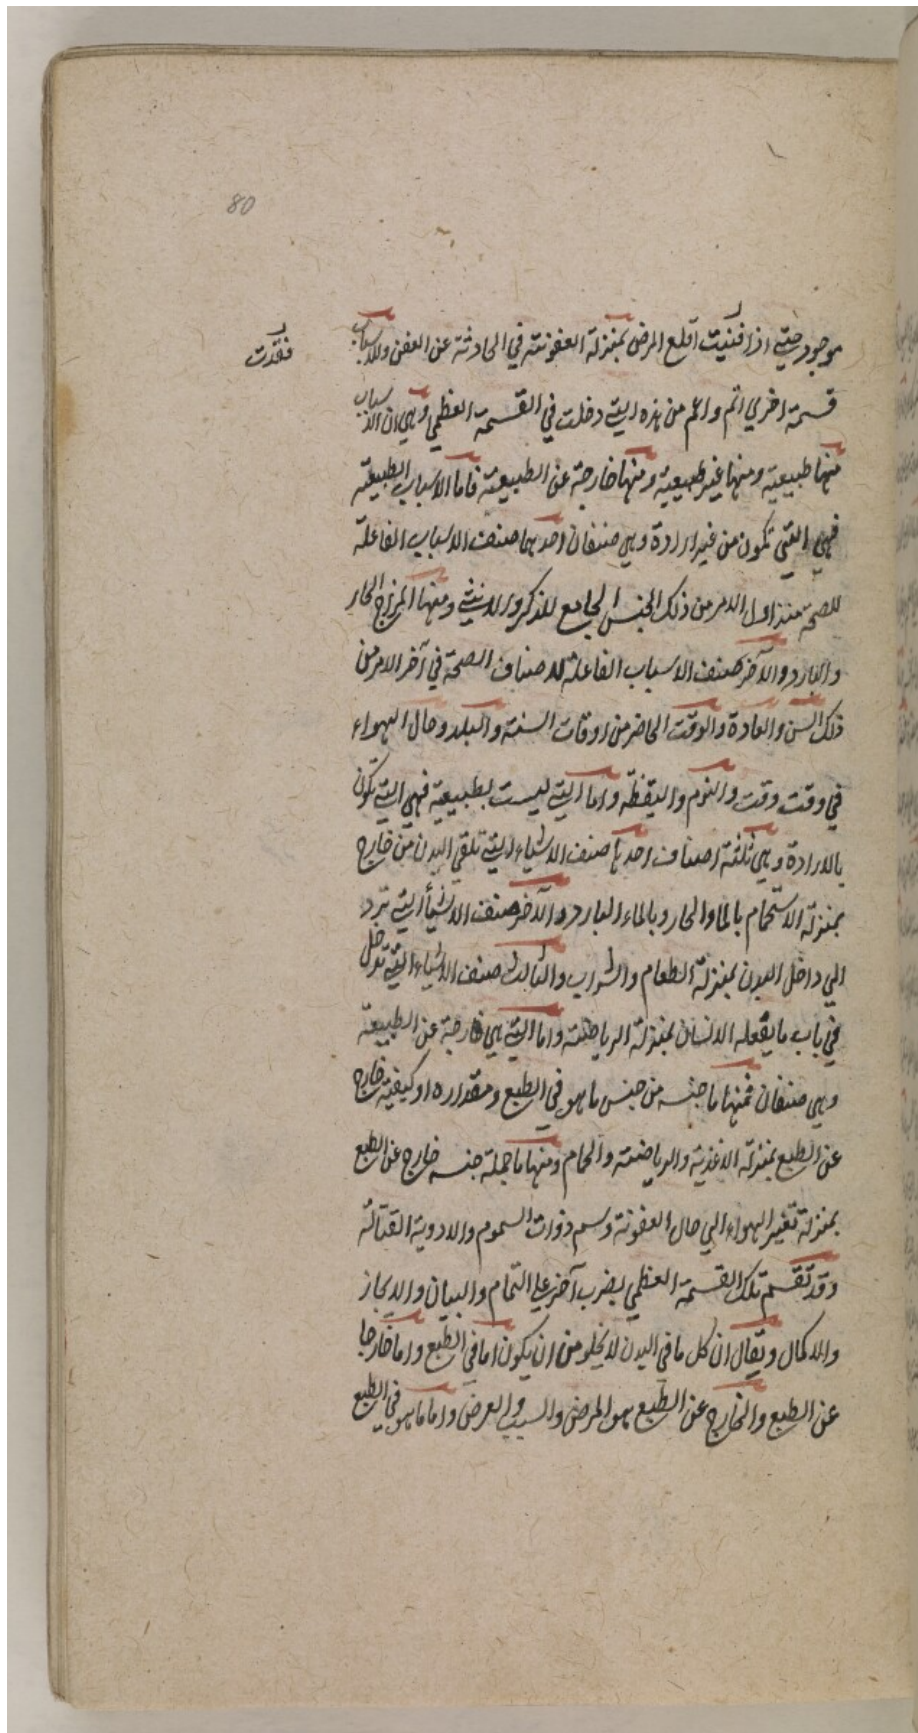 80
موجود حتى اذا فنيت اقلع المرض بمنزلة العفونة في الحادثة عن العفن وللاسباب
فقدت
قسمة اخري اتم واعم من هذه التي دخلت في القسمة العظمي وهي ان الاسباب
منها طبيعية ومنها غير طبيعية ومنها خارجة عن الطبيعية فاما الاسباب الطبيعية
فهي التي تكون من غير ارادة وهي صنفان احدهما صنف الاسباب الفاعلة
للصحة منذ اول الامر من ذلك الجنس الجامع للذكر والانثي ومنها المزاج الحار
والبارد والآخر صنف الاسباب الفاعلة لاصناف الصحة في آخر الامر من
ذلك السن والعادة والوقت الحاضر من اوقات السنة والبلد وحال الهواء
في وقت وقت والنوم واليقظة واما التي ليست بطبيعية فهي التي تكون
بالارادة وهي ثلثة اصناف احدها صنف الاشياء التي تلقي البدن من خارج
بمنزلة الاستحمام بالماء الحار وبالماء البارد والآخر صنف الاشياء التي ترد
الي داخل البدن بمنزلة الطعام والشراب والثالث صنف الاشياء التي تدخل
في باب ما يفعله الانسان بمنزلة الرياضة واما التي هي خارجة عن الطبيعة
وهي صنفان فمنها ما جنسه من جنس ما هو في الطبع ومقداره او كيفيته خارج
عن الطبع بمنزلة الاغذية والرياضة والحمام ومنها ما جملة جنسه خارج عن الطبع
بمنزلة تغير الهواء الي حال العفونة وسم ذوات السموم والادوية القتالة
وقد تقسم تلك القسمة العظمي بضرب آخر علي التمام والبيان والايجاز
والاكمال ويقال ان كل ما في البدن لا يخلو من ان يكون اما في الطبع واما خارجا
عن الطبع والخارج عن الطبع هو المرض والسبب والعرض واما ما هو في الطبع